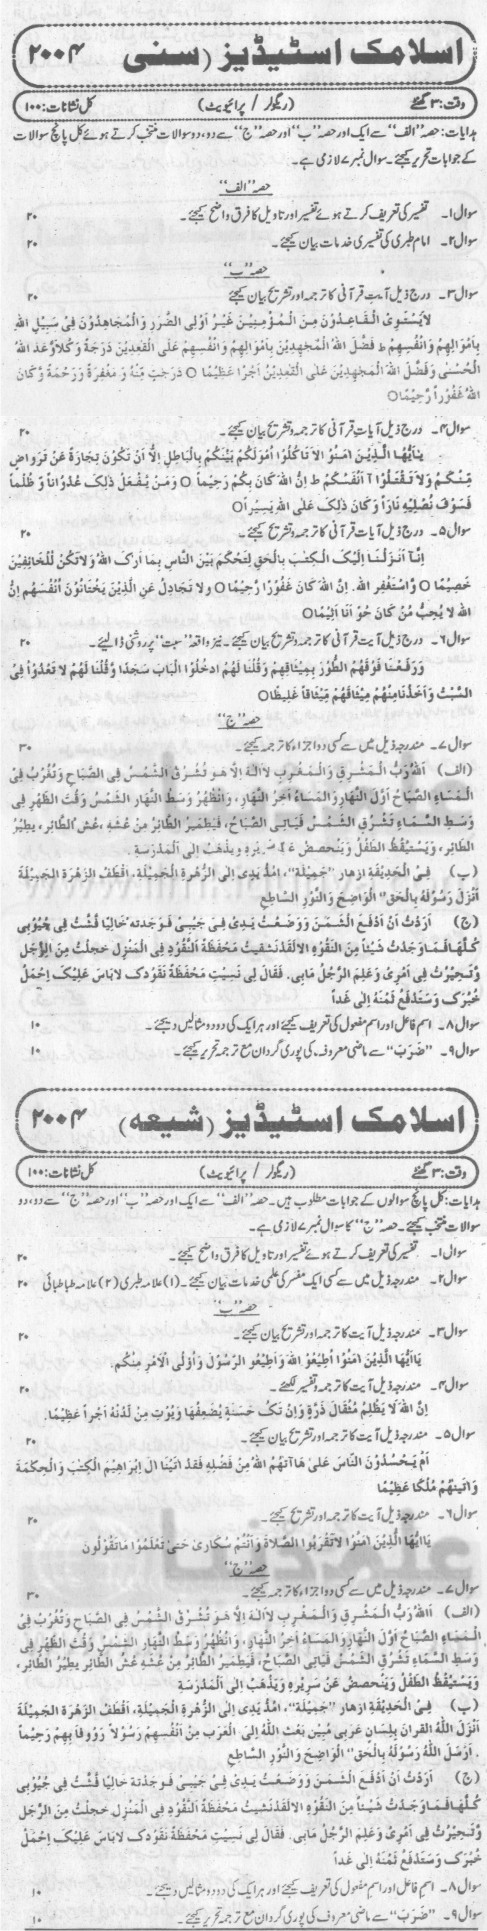 اسلامک اسٹیڈیز (سنی) ۲۰۰۴
وقت: ۳ گھنٹے (ریگولر / پرائیویٹ) کل نشانات: ۱۰۰
ہدایات: حصہ "الف" سے ایک اور حصہ "ب" اور حصہ "ج" سے دو، دو سوالات منتخب کرتے ہوئے کل پانچ سوالات
کے جوابات تحریر کیجئے۔ سوال نمبر ۷ لازمی ہے۔
حصہ "الف"
سوال ۱۔ تفسیر کی تعریف کرتے ہوئے تفسیر اور تاویل کا فرق واضح کیجئے۔ ۲۰
سوال ۲۔ امام طبری کی تفسیری خدمات بیان کیجئے۔ ۲۰
حصہ "ب"
سوال ۳۔ درج ذیل آیت قرآنی کا ترجمہ اور تشریح بیان کیجئے ۲۰
لَا يَسْتَوِى الْقَاعِدُونَ مِنَ الْمُؤْمِنِيْنَ غَيْرُ اُولِى الضَّرَرِ وَالْمُجَاهِدُوْنَ فِىْ سَبِيْلِ اللهِ
بِاَمْوَالِهِمْ وَاَنْفُسِهِمْ ط فَضَّلَ اللهُ الْمُجٰهِدِيْنَ بِاَمْوَالِهِمْ وَاَنْفُسِهِمْ عَلَى الْقٰعِدِيْنَ دَرَجَةً وَكُلًّا وَّعَدَ اللهُ
الْحُسْنٰى وَفَضَّلَ اللهُ الْمُجٰهِدِيْنَ عَلَى الْقٰعِدِيْنَ اَجْرًا عَظِيْمًا ○ دَرَجٰتٍ مِّنْهُ وَ مَغْفِرَةً وَّرَحْمَةً وَّكَانَ
اللهُ غَفُوْرًا رَّحِيْمًا○
سوال ۴۔ درج ذیل آیات قرآنی کا ترجمہ و تشریح بیان کیجئے۔ ۲۰
يٰاَيُّهَا الَّذِيْنَ اٰمَنُوْا لَا تَاْكُلُوْا اَمْوٰلَكُمْ بَيْنَكُمْ بِالْبَاطِلِ اِلَّا اَنْ تَكُوْنَ تِجَارَةً عَنْ تَرَاضٍ
مِّنْكُمْ وَلَا تَقْتُلُوْا اَنْفُسَكُمْ ط اِنَّ اللهَ كَانَ بِكُمْ رَحِيْمًا ○ وَمَنْ يَّفْعَلْ ذٰلِكَ عُدْوَانًا وَّظُلْمًا
فَسَوْفَ نُصْلِيْهِ نَارًا وَكَانَ ذٰلِكَ عَلَى اللهِ يَسِيْرًا○
سوال ۵۔ درج ذیل آیات قرآنی کا ترجمہ و تشریح کیجئے۔ ۲۰
اِنَّا اَنْزَلْنَا اِلَيْكَ الْكِتٰبَ بِالْحَقِّ لِتَحْكُمَ بَيْنَ النَّاسِ بِمَا اَرٰكَ اللهُ وَلَا تَكُنْ لِّلْخَائِنِيْنَ
خَصِيْمًا ○ وَّاسْتَغْفِرِ اللهَ۔ اِنَّ اللهَ كَانَ غَفُوْرًا رَّحِيْمًا○ وَلَا تُجَادِلْ عَنِ الَّذِيْنَ يَخْتَانُوْنَ اَنْفُسَهُمْ اِنَّ
اللهَ لَا يُحِبُّ مَنْ كَانَ
سوال ۶۔ درج ذیل آیت قرآنی کا ترجمہ کیجئے۔ نیز واقعہ "سبت" پر روشنی ڈالیئے۔ ۲۰
وَرَفَعْنَا فَوْقَهُمُ الطُّوْرَ بِمِيْثَاقِهِمْ وَقُلْنَا لَهُمُ ادْخُلُوا الْبَابَ سُجَّدًا وَّقُلْنَا لَهُمْ لَا تَعْدُوْا فِى
السَّبْتِ وَاَخَذْنَا مِنْهُمْ مِّيْثَاقًا غَلِيْظًا○
حصہ "ج"
سوال ۷۔ مندرجہ ذیل میں سے کسی دو اجزاء کا ترجمہ کیجئے۔ ۳۰
(الف) اَللهُ رَبُّ الْمَشْرِقِ وَالْمَغْرِبِ لَا اِلٰهَ اِلَّا هُوَ تُشْرِقُ الشَّمْسُ فِى الصَّبَاحِ وَتَغْرُبُ فِى
الْمَسَاءِ الصَّبَاحُ اَوَّلُ النَّهَارِ وَالْمَسَاءُ اٰخِرُ النَّهَارِ، وَالظُّهْرُ وَسَطُ النَّهَارِ الشَّمْسُ وَقْتَ الظُّهْرِ فِى
وَسَطِ السَّمَاءِ تَشْرُقُ الشَّمْسُ فَيَاتِى الصَّبَاحُ، فَيَطِيرُ الطَّائِرُ مِنْ عُشِّهِ، عُشُّ الطَّائِرِ، يَطِيْرُ
الطَّائِرُ، وَيَسْتَيْقِظُ الطِّفْلُ وَيَذْهَبُ اِلَى الْمَدْرَسَةِ۔
(ب) فِى الْحَدِيْقَةِ اَزْهَارٌ "جَمِيْلَةٌ"، اَمُدُّ يَدِى اِلَى الزَّهْرَةِ الْجَمِيْلَةِ، اَقْطِفُ الزَّهْرَةَ الْجَمِيْلَةَ
اَنْزَلَ رَسُوْلَهُ بِالْحَقِّ الْوَاضِحِ وَالنُّوْرِ السَّاطِعِ
(ج) اَرَدْتُ اَنْ اَدْفَعَ الثَّمَنَ وَوَضَعْتُ يَدِى فِى جَيْبِى فَوَجَدْتُهُ خَالِيًا فَتَّشْتُ فِى جُيُوْبِى
كُلِّهَا فَمَا وَجَدْتُ شَيْئًا مِنَ النُّقُوْدِ مَحْفَظَةَ النُّقُوْدِ فِى الْمَنْزِلِ خَجِلْتُ مِنَ الرَّجُلِ
وَتَحَيَّرْتُ فِى اَمْرِى وَعَلِمَ الرَّجُلُ مَابِى۔ فَقَالَ لِى نَسِيْتَ مَحْفَظَةَ نُقُوْدِكَ لَا بَاْسَ عَلَيْكَ اِحْمِلْ
خُبْزَكَ وَسَتَدْفَعُ ثَمَنَهُ لِى غَدًا
سوال ۸۔ اسم فاعل اور اسم مفعول کی تعریف کیجئے اور ہر ایک کی دو دو مثالیں دیجئے۔ ۱۰
سوال ۹۔ "ضَرَبَ" سے ماضی معروف کی پوری گردان مع ترجمہ تحریر کیجئے۔ ۱۰
اسلامک اسٹیڈیز (شیعہ) ۲۰۰۴
وقت: ۳ گھنٹے (ریگولر / پرائیویٹ) کل نشانات: ۱۰۰
ہدایات: کل پانچ سوالوں کے جوابات مطلوب ہیں۔ حصہ "الف" سے ایک اور حصہ "ب" اور حصہ "ج" سے دو، دو
سوالات منتخب کیجئے۔ حصہ "ج" کا سوال نمبر ۷ لازمی ہے۔
سوال ۱۔ تفسیر کی تعریف کرتے ہوئے تفسیر اور تاویل کا فرق واضح کیجئے۔ ۲۰
سوال ۲۔ مندرجہ ذیل میں سے کسی ایک مفسر کی علمی خدمات بیان کیجئے۔ (۱) علامہ طبری (۲) علامہ طباطبائی ۲۰
حصہ "ب"
سوال ۳۔ مندرجہ ذیل آیت کا ترجمہ اور تشریح بیان کیجئے۔ ۲۰
يَا اَيُّهَا الَّذِيْنَ اٰمَنُوْا اَطِيْعُوا اللهَ وَاَطِيْعُو الرَّسُوْلَ وَاُوْلِى الْاَمْرِ مِنْكُمْ۔
سوال ۴۔ مندرجہ ذیل آیت کا ترجمہ و تفسیر لکھئے۔ ۲۰
اِنَّ اللهَ لَا يَظْلِمُ مِثْقَالَ ذَرَّةٍ وَاِنْ تَكُ حَسَنَةً يُّضٰعِفْهَا وَيُؤْتِ مِنْ لَّدُنْهُ اَجْراً عَظِيْمًا۔
سوال ۵۔ مندرجہ ذیل آیت کا ترجمہ اور تشریح بیان کیجئے۔ ۲۰
اَمْ يَحْسُدُوْنَ النَّاسَ عَلٰى مَا اٰتٰهُمُ اللهُ مِنْ فَضْلِهٖ فَقَدْ اٰتَيْنَا اٰلَ اِبْرَاهِيْمَ الْكِتٰبَ وَالْحِكْمَةَ
وَاٰتَيْنٰهُمْ مُّلْكًا عَظِيْمًا
سوال ۶۔ مندرجہ ذیل آیت کا ترجمہ اور تشریح کیجئے۔ ۲۰
يَا اَيُّهَا الَّذِيْنَ اٰمَنُوْا لَا تَقْرَبُوا الصَّلَاةَ وَاَنْتُمْ سُكَارٰى حَتّٰى تَعْلَمُوْا مَا تَقُوْلُوْنَ
حصہ "ج"
سوال ۷۔ مندرجہ ذیل میں سے کسی دو اجزاء کا ترجمہ کیجئے۔ ۳۰
(الف) اَللهُ رَبُّ الْمَشْرِقِ وَالْمَغْرِبِ لَا اِلٰهَ اِلَّا هُوَ تُشْرِقُ الشَّمْسُ فِى الصَّبَاحِ وَتَغْرُبُ فِى
الْمَسَاءِ الصَّبَاحُ اَوَّلُ النَّهَارِ وَالْمَسَاءُ اٰخِرُ النَّهَارِ، وَالظُّهْرُ وَسَطُ النَّهَارِ الشَّمْسُ وَقْتَ الظُّهْرِ فِى
وَسَطِ السَّمَاءِ تَشْرُقُ الشَّمْسُ فَيَاتِى الصَّبَاحُ، فَيَطِيرُ الطَّائِرُ مِنْ عُشِّهِ عُشُّ الطَّائِرِ يَطِيْرُ الطَّائِرُ،
وَيَسْتَيْقِظُ الطِّفْلُ وَيَنْهَضُ عَنْ سَرِيْرِهِ وَيَذْهَبُ اِلَى الْمَدْرَسَةِ
(ب) فِى الْحَدِيْقَةِ اَزْهَارٌ "جَمِيْلَةٌ"، اَمُدُّ يَدِى اِلَى الزَّهْرَةِ الْجَمِيْلَةِ، اَقْطِفُ الزَّهْرَةَ الْجَمِيْلَةَ
اَنْزَلَ اللهُ الْقُرْاٰنَ بِلِسَانٍ عَرَبِىٍّ مُبِيْنٍ بَعَثَ اللهُ اِلَى الْعَرَبِ مِنْ اَنْفُسِهِمْ رَسُوْلًا رَؤُوْفًا بِهِمْ رَحِيْمًا
۔ اَرْسَلَ اللهُ رَسُوْلَهُ بِالْحَقِّ الْوَاضِحِ وَالنُّوْرِ السَّاطِعِ
(ج) اَرَدْتُ اَنْ اَدْفَعَ الثَّمَنَ وَوَضَعْتُ يَدِى فِى جَيْبِى فَوَجَدْتُهُ خَالِيًا فَتَّشْتُ فِى جُيُوْبِى
كُلِّهَا فَمَا وَجَدْتُ شَيْئًا مِنَ النُّقُوْدِ مَحْفَظَةَ النُّقُوْدِ فِى الْمَنْزِلِ خَجِلْتُ مِنَ الرَّجُلِ
وَتَحَيَّرْتُ فِى اَمْرِى وَعَلِمَ الرَّجُلُ مَابِى۔ فَقَالَ لِى نَسِيْتَ مَحْفَظَةَ نُقُوْدِكَ لَا بَاْسَ عَلَيْكَ اِحْمِلْ
خُبْزَكَ وَسَتَدْفَعُ ثَمَنَهُ لِى غَدًا
سوال ۸۔ اسم فاعل اور اسم مفعول کی تعریف کیجئے اور ہر ایک کی دو دو مثالیں دیجئے۔ ۱۰
سوال ۹۔ "ضَرَبَ" سے ماضی معروف کی پوری گردان مع ترجمہ تحریر کیجئے۔ ۱۰